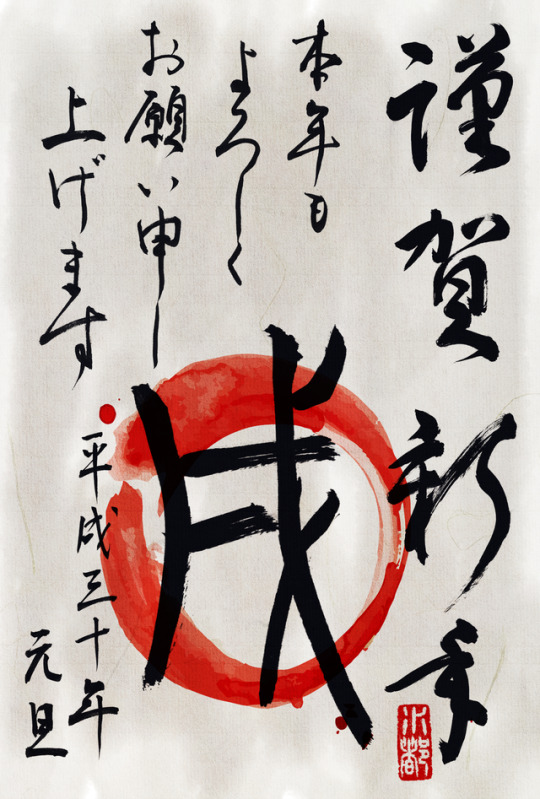 謹賀新年
本年も
よろしく
お願い申し
上げます
戌
平成三十年
元旦